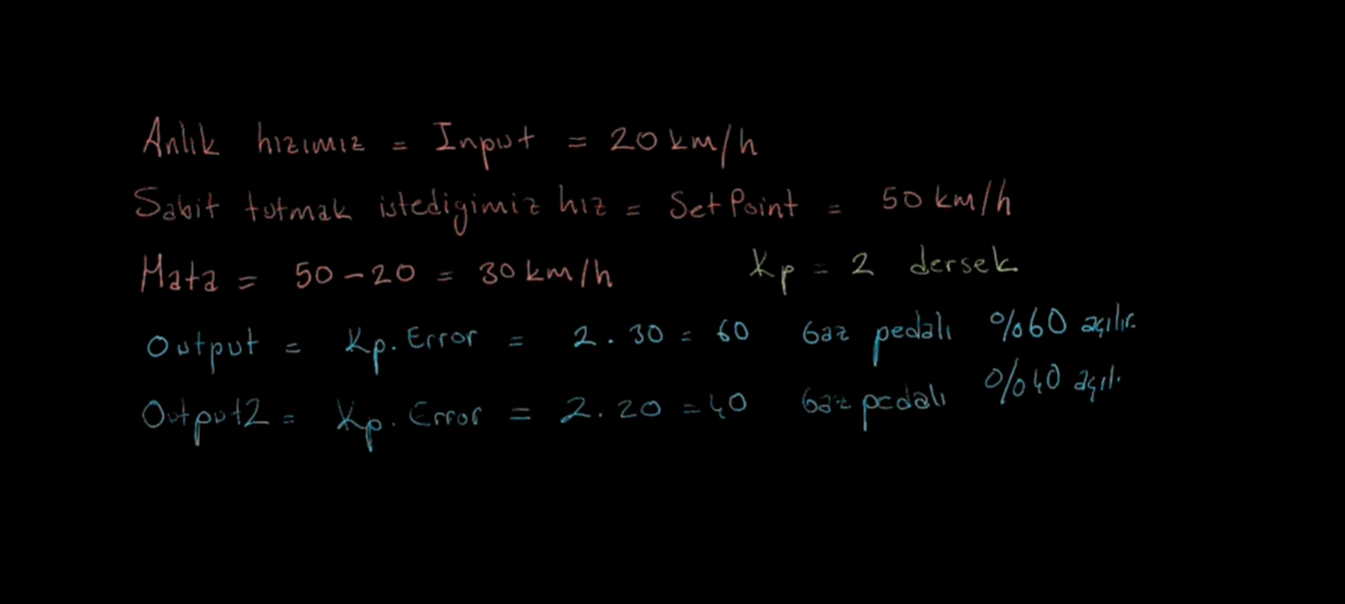 Anlık hızımız = Input = 20 km/h
Sabit tutmak istedigimiz hız = Set Point = 50 km/h
Hata = 50-20 = 30 km/h Kp = 2 dersek
Output = Kp. Error = 2.30 = 60 Gaz pedalı %60 açılır.
Output2 = Kp. Error = 2.20 = 40 Gaz pedalı %40 açılı.